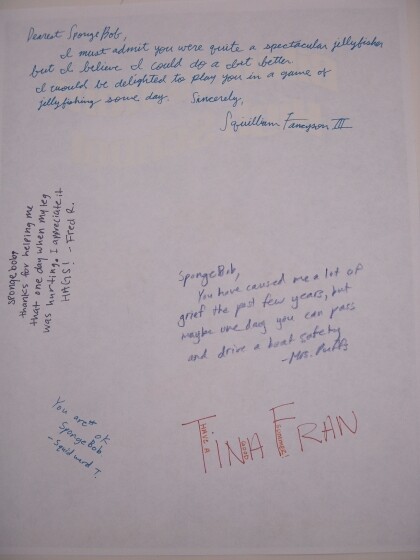 Dearest SpongeBob,
I must admit you were quite a spectacular jellyfisher
but I believe I could do a lot better.
I would be delighted to play you in a game of
jellyfishing some day. Sincerely,
Squilliam Fancyson III
Spongebob,
thanks for helping me
that one day when my leg
was hurting. I appreciate it
HAGS! - Fred R.
SpongeBob,
You have caused me a lot of
grief the past few years, but
maybe one day you can pass
and drive a boat safely
-Mrs. Puff
You are ok
SpongeBob
- Squidward T.
TINA FRAN
HAVE A
GOOD
SUMMER!